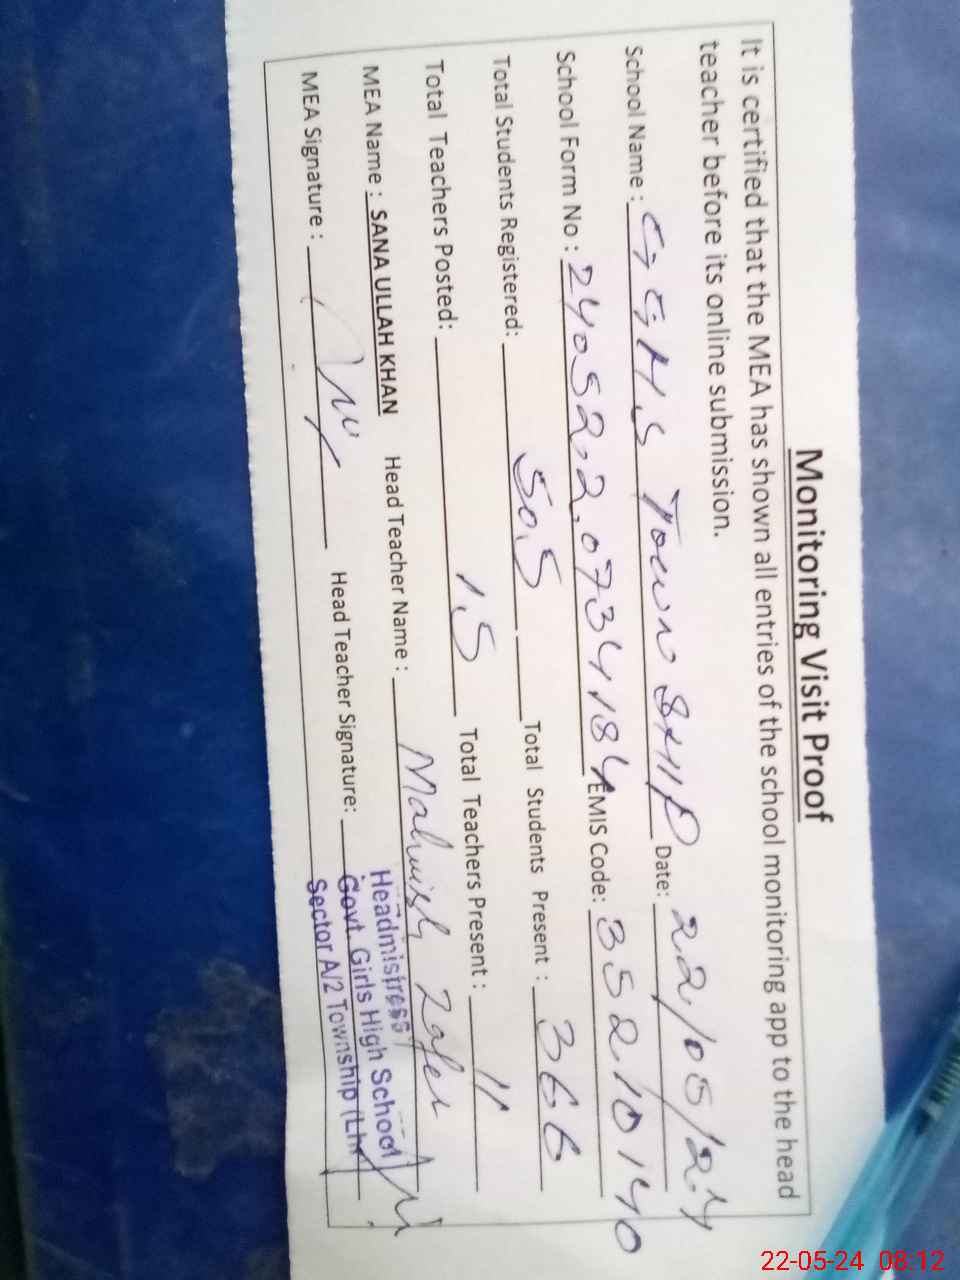 Monitoring Visit Proof
It is certified that the MEA has shown all entries of the school monitoring app to the head
teacher before its online submission.
School Name : G G H S Town SHIP Date: 22/05/24
School Form No : 2405220734184 EMIS Code: 35210140
Total Students Registered: 505 Total Students Present : 366
Total Teachers Posted: 15 Total Teachers Present : 11
MEA Name : SANA ULLAH KHAN Head Teacher Name : Mahwish Zafer
MEA Signature : Head Teacher Signature:
Headmistress
Govt. Girls High School
Sector A/2 Township (Lhr)
22-05-24 08:12